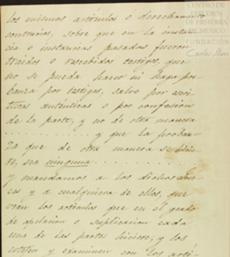 los mismos artículos o derechamente
contrarios, sobre que en la instan-
cia o instancias pasadas fueron
traidos o rescebidos testigos, que
no se pueda hacer ni haga pro-
banza por testigos, salvo por escri-
turas auténticas o por confesión
de la parte, y no de otra manera
. . . . . . . . . y que la proban-
za que de otra manera se hicie-
re, sea ninguna. . . . . . . . .
y mandamos a los
y a cualquiera de ellos, que
vean los artículos que en el grado
de apelacion o suplicacion cada
una de las partes hiciere; y los
y examinen con los artí-